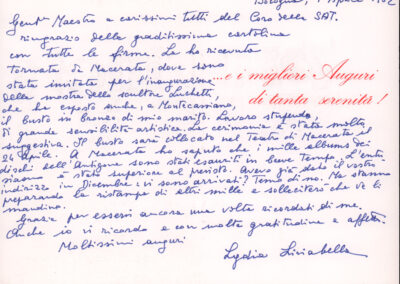 Bologna, 1 Aprile 1982
Gent. Maestro e carissimi tutti del Coro della SAT.
ringrazio della graditissima cartolina
con tutte le firme. La ho ricevuta
tornata da Macerata, dove sono
stata invitata per l'inaugurazione
della mostra dello scultore Luchetti,
che ha esposto anche, a Montecassiano,
il busto in bronzo di mio marito. Lavoro stupendo,
di grande sensibilità artistica. La cerimonia è stata molto
suggestiva. Il busto sarà collocato nel Teatro di Macerata il
24 Aprile. A Macerata ho saputo che i mille albums dei
dischi dell'Antigone sono stati esauriti in breve tempo. L'entu-
siasmo è stato superiore al previsto. Avevo già dato il vostro
indirizzo in Dicembre: vi sono arrivati? Temo di no. Ma stanno
preparando la ristampa di altri mille e solleciterò che ve li
mandino.
Grazie per essersi ancora una volta ricordati di me.
Anche io vi ricordo e con molta gratitudine e affetto.
Moltissimi auguri
Lydia Liviabella
...e i migliori Auguri
di tanta serenità!